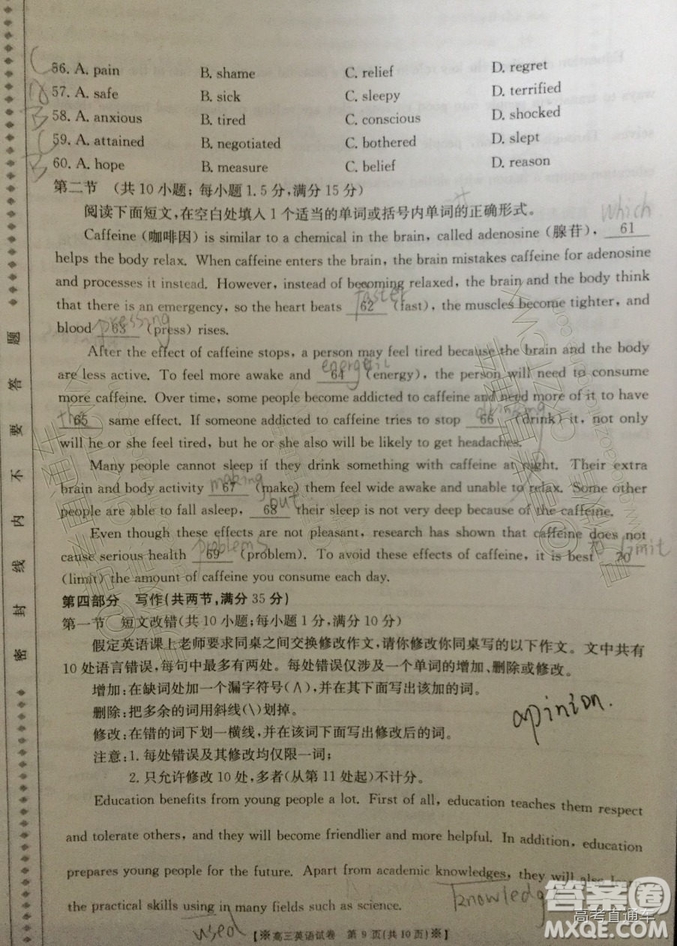 C
56. A. pain B. shame C. relief D. regret
57. A. safe B. sick C. sleepy D. terrified
B
58. A. anxious B. tired C. conscious D. shocked
59. A. attained B. negotiated C. bothered D. slept
B
60. A. hope B. measure C. belief D. reason
第二节 (共10小题;每小题1.5分,满分15分)
阅读下面短文,在空白处填入1个适当的单词或括号内单词的正确形式。
which
Caffeine (咖啡因) is similar to a chemical in the brain, called adenosine (腺苷), 61
helps the body relax. When caffeine enters the brain, the brain mistakes caffeine for adenosine
and processes it instead. However, instead of becoming relaxed, the brain and the body think
faster
that there is an emergency, so the heart beats 62 (fast), the muscles become tighter, and
pressing
blood 63 (press) rises.
After the effect of caffeine stops, a person may feel tired because the brain and the body
are less active. To feel more awake and 64 (energy), the person will need to consume
more caffeine. Over time, some people become addicted to caffeine and need more of it to have
the
65 same effect. If someone addicted to caffeine tries to stop 66 (drink) it, not only
will he or she feel tired, but he or she also will be likely to get headaches.
Many people cannot sleep if they drink something with caffeine at night. Their extra
making
brain and body activity 67 (make) them feel wide awake and unable to relax. Some other
but
people are able to fall asleep, 68 their sleep is not very deep because of the caffeine.
Even though these effects are not pleasant, research has shown that caffeine does not
problems
cause serious health 69 (problem). To avoid these effects of caffeine, it is best 70
to limit
(limit) the amount of caffeine you consume each day.
第四部分 写作(共两节,满分35分)
第一节 短文改错(共10小题;每小题1分,满分10分)
假定英语课上老师要求同桌之间交换修改作文,请你修改你同桌写的以下作文。文中共有
10处语言错误,每句中最多有两处。每处错误仅涉及一个单词的增加、删除或修改。
增加:在缺词处加一个漏字符号(∧),并在其下面写出该加的词。
删除:把多余的词用斜线(\)划掉。
修改:在错的词下划一横线,并在该词下面写出修改后的词。
注意:1. 每处错误及其修改均仅限一词;
2. 只允许修改10处,多者(从第11处起)不计分。
opinion.
Education benefits from young people a lot. First of all, education teaches them respect
and tolerate others, and they will become friendlier and more helpful. In addition, education
prepares young people for the future. Apart from academic knowledges, they will also learn
the practical skills using in many fields such as science.
used
【※高三英语试卷 第9页(共10页)※】
密封线内不要答题
答案圈
高考直通车